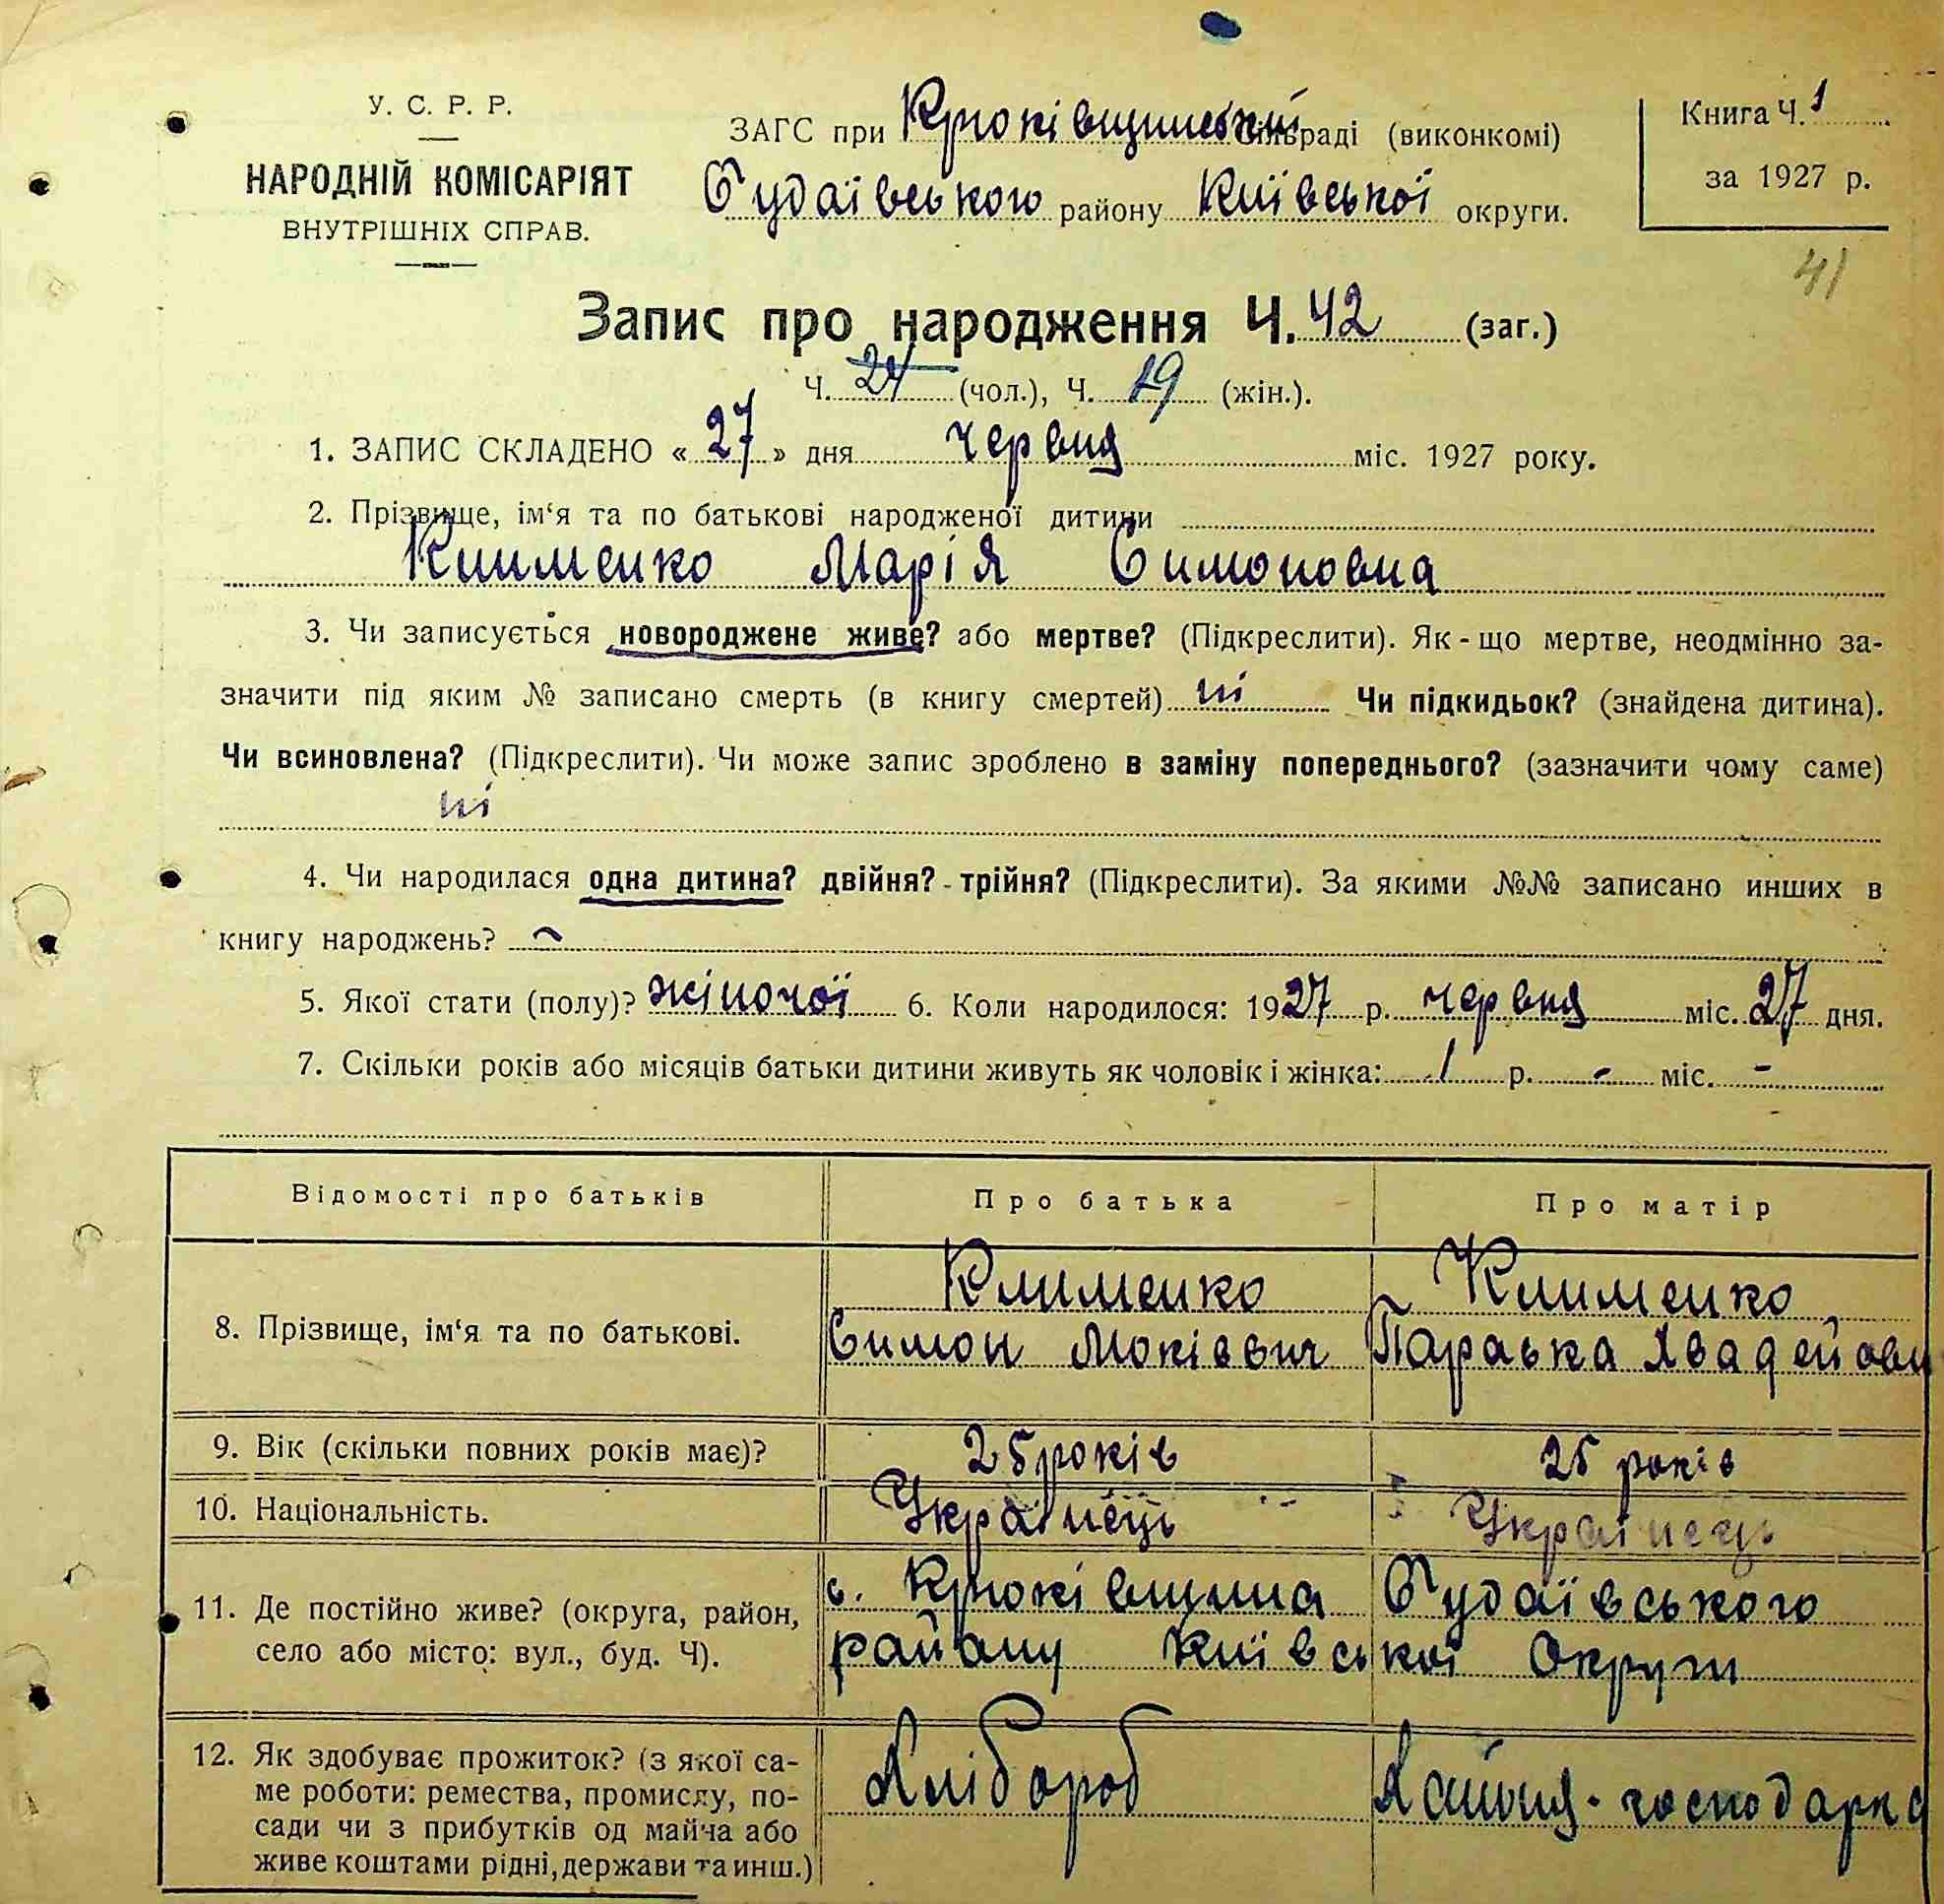 У. С. Р. Р.
НАРОДНІЙ КОМІСАРІЯТ
ВНУТРІШНІХ СПРАВ.
ЗАГС при Крюківщинській сільраді (виконкомі)
Будаївського району Київської округи.
Книга Ч. 1
за 1927 р.
41
Запис про народження Ч. 42 (заг.)
Ч. 24 (чол.), Ч. 19 (жін.).
1. ЗАПИС СКЛАДЕНО « 27 » дня червня міс. 1927 року.
2. Прізвище, ім‘я та по батькові народженої дитини
Клименко Марія Симоновна
3. Чи записується новороджене живе? або мертве? (Підкреслити). Як-що мертве, неодмінно за-
значити під яким № записано смерть (в книгу смертей) ні Чи підкидьок? (знайдена дитина).
Чи всиновлена? (Підкреслити). Чи може запис зроблено в заміну попереднього? (зазначити чому саме)
ні
4. Чи народилася одна дитина? двійня? - трійня? (Підкреслити). За якими №№ записано инших в
книгу народжень? ~
5. Якої стати (полу)? жіночої 6. Коли народилося: 1927 р. червня міс. 27 дня.
7. Скільки років або місяців батьки дитини живуть як чоловік і жінка: 1 р. - міс. -
Відомості про батьків Про батька Про матір
8. Прізвище, ім‘я та по батькові.
Клименко
Симон Мокієвич
Клименко
Параська Авадейовн
9. Вік (скільки повних років має)? 25 років 25 років
10. Національність. Українець Українець
11. Де постійно живе? (округа, район,
село або місто: вул., буд. Ч).
с. Крюківщина Будаївського
району Київської Округи
12. Як здобуває прожиток? (з якої са-
ме роботи: ремества, промислу, по-
сади чи з прибутків од майна або
живе коштами рідні, держави та инш.)
Хлібороб
Хатня-господарка